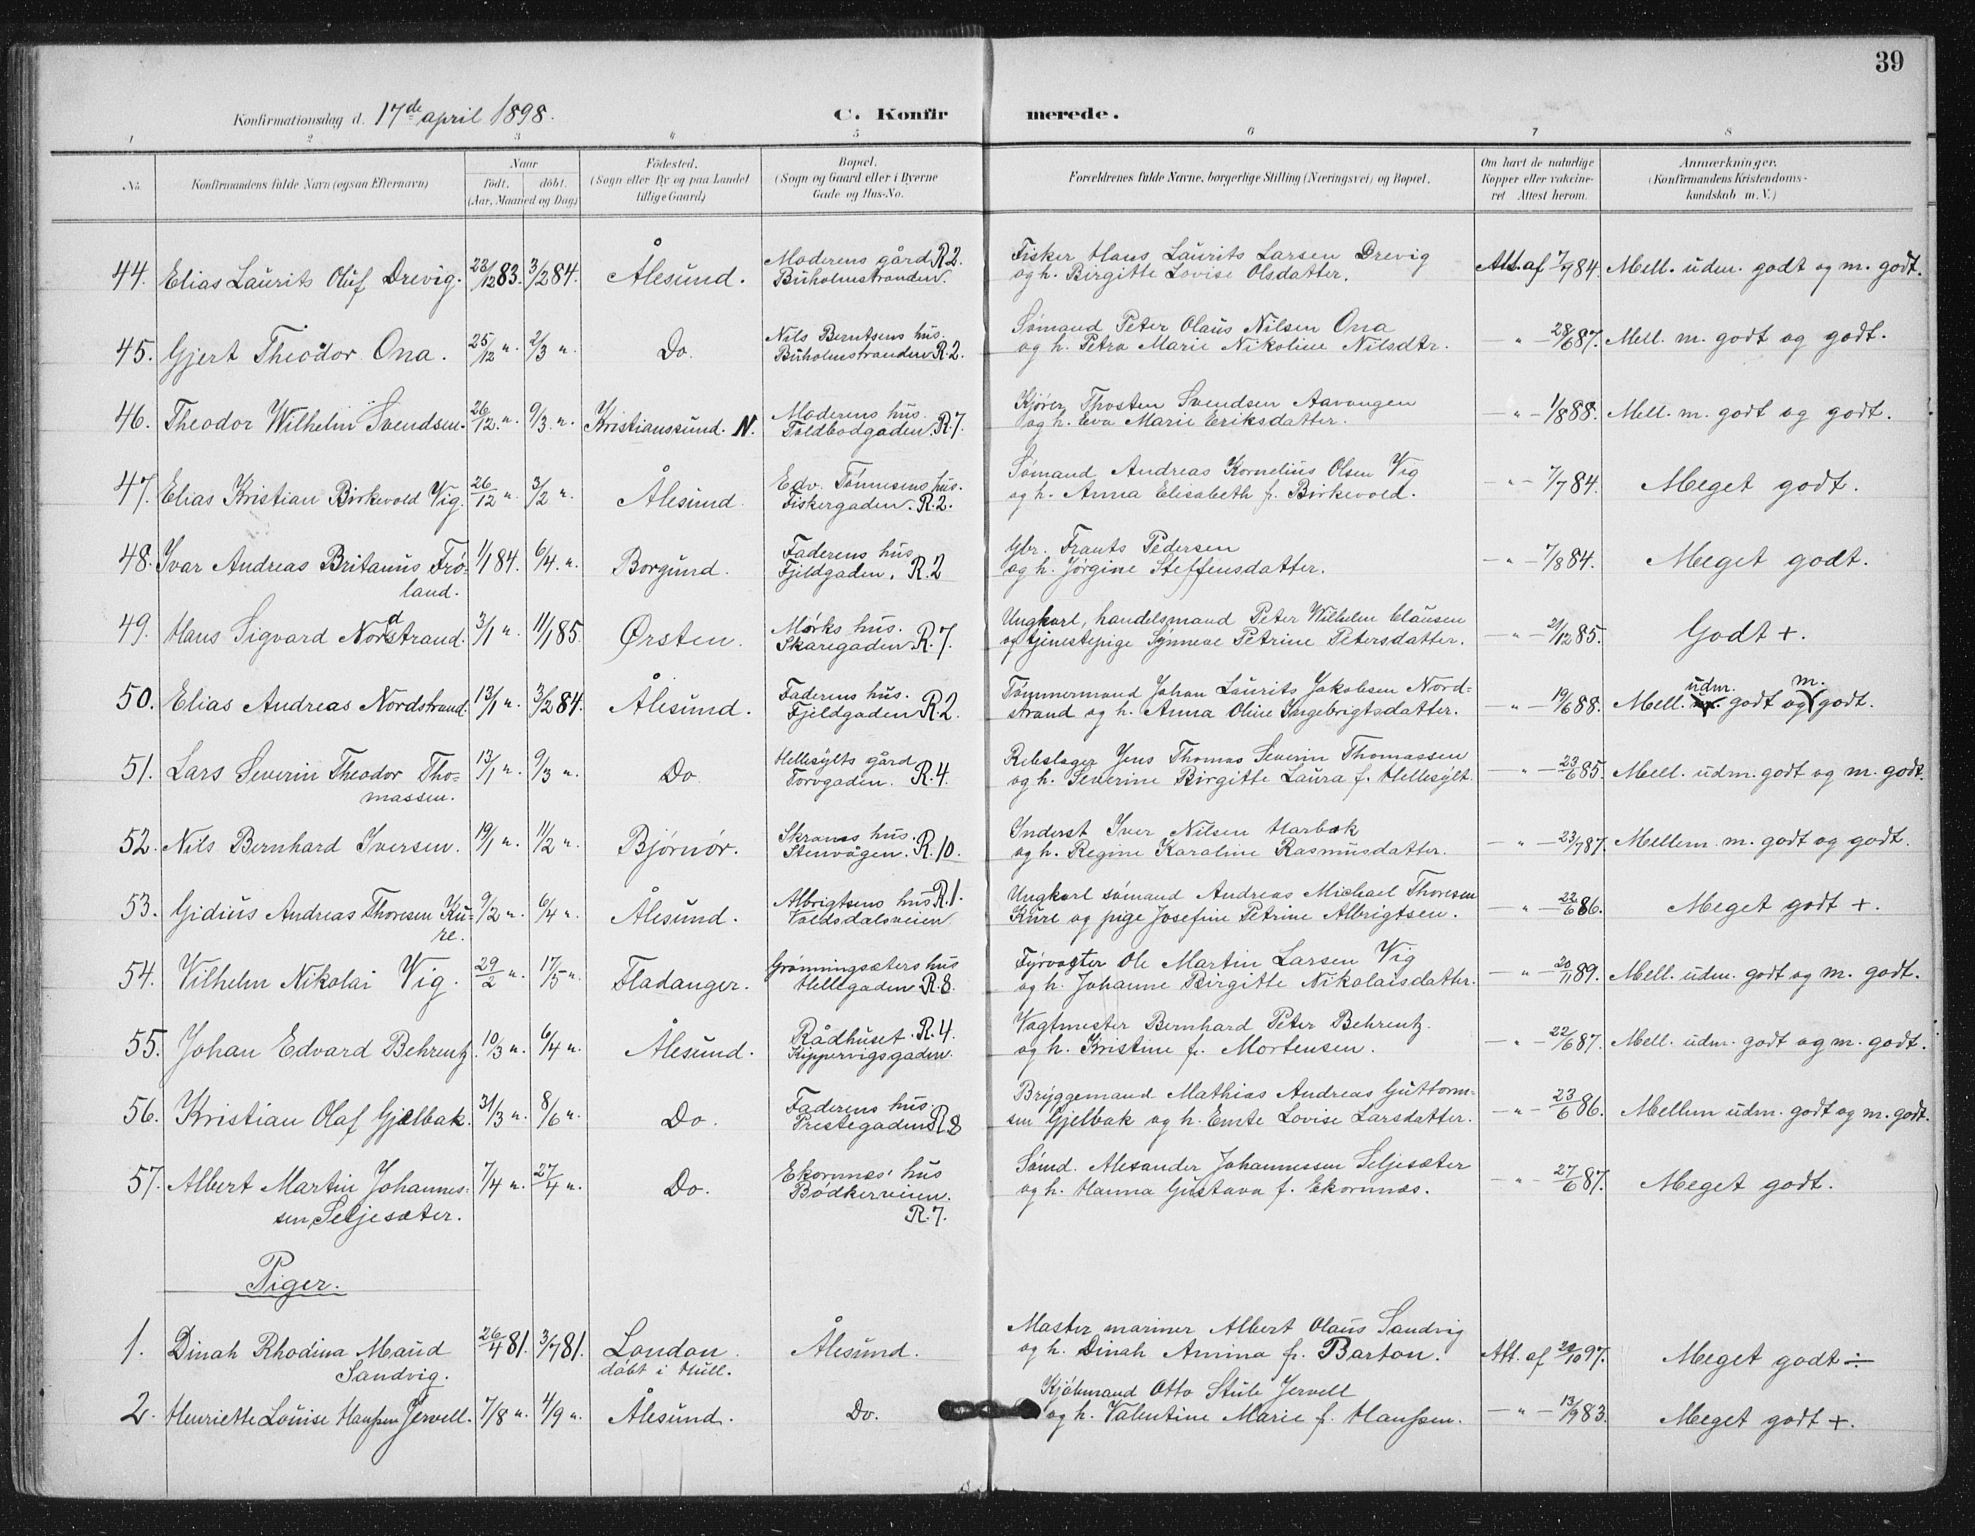 39
Konfirmationsdag d. 17de april 1898. C. Konfirmerede.
1 2 3 4 5 6 7 8
No. Konfirmandens fulde Navn (ogsaa Efternavn) Naar født. døbt. (Aar, Maaned og Dag) Fødested. (Sogn eller By og paa Landet tillige Gaard) Bopæl. (Sogn og Gaard eller i Byerne Gade og Hus-No. Forældrenes fulde Navne, borgerlige Stilling (Næringsvei) og Bopæl. Om havt de naturlige Kopper eller vakcineret Attest herom. Anmærkninger. (Konfirmandens Kristendomskundskab m. V.)
44. Elias Laurits Oluf Drevig. 23/12 83. 3/2 84. Ålesund. Moderens gård R.2. Buholmstranden. Fisker Hans Laurits Larsen Drevig og h. Birgitte Lovise Olsdatter. Att. af 7/9 84. Mell. udm. godt og m. godt.
45. Gjert Theodor Ona. 25/12 " 2/3 " Do. Nils Berntsens hus. Buholmstranden R.2. Sømand Peter Olaus Nilsen Ona og h. Petra Marie Nikoline Nilsdtr. — " — 28/6 87. Mell. m. godt og godt.
46. Theodor Wilhelm Svendsen. 26/12. " 9/3. " Kristianssund. N. Moderens hus. Toldbodgaden. R.7. Kjører Thosten Svendsen Aavangen og h. Eva Marie Eriksdatter. — " — 1/8 88. Mell. m. godt og godt.
47. Elias Kristian Birkevold Vig. 26/12 " 3/2 " Ålesund. Edv. Tønnesens hus. Fiskergaden. R.2. Sømand Andreas Kornelius Olsen Vig og h. Anna Elisabeth f. Birkevold. — " — 7/7 84. Meget godt.
48. Ivar Andreas Britanus Frøland. 1/1 84. 6/4. " Borgund. Faderens hus Fjeldgaden. R.2 Gbr. Frants Pedersen og h. Jørgine Steffensdatter. — " — 7/8 84. Meget godt.
49. Hans Sigvard Nordstrand. 3/1 " 11/1 85. Ørsten. Mørks hus. Skaregaden R.7. Ungkarl, handelsmand Peter Wilhelm Clausen og tjenestepige Synneve Petrine Petersdatter. — " — 21/12 85. Godt +.
50. Elias Andreas Nordstrand. 13/1 " 3/2 84. Ålesund. Faderens hus. Fjeldgaden R.2. Tømmermand Johan Laurits Jakobsen Nordstrand og h. Anna Oline Ingebrigtsdatter. — " — 19/6 88. Mell. udm. godt og m. godt.
51. Lars Severin Theodor Thomassen. 13/1 " 9/3 " Do. Hellesylts gård Torvgaden. R.4. Rebslager Jens Thomas Severin Thomassen og h. Severine Birgitte Laura f. Hellesylt. — " — 23/6 85. Mell. udm. godt og m. godt.
52. Nils Bernhard Iversen. 19/1 " 11/2 " Bjørnør. Skranes hus. Stenvågen. R.10. Inderst Iver Nilsen Harbak og h. Regine Karoline Rasmusdatter. — " — 23/7 87. Mellem m. godt og godt.
53. Gidius Andreas Thoresen Kure. 9/2 " 6/4 " Ålesund. Albrigtsens hus R.1. Voldsdalsveien Ungkarl sømand Andreas Michael Thoresen Kure og pige Josefine Petrine Albrigtsen. — " — 22/6 86. Meget godt +.
54. Vilhelm Nikolai Vig. 29/2 " 17/5 " Fladanger. Grønningsæters hus Hellegaden R.8. Fyrvogter Ole Martin Larsen Vig og h. Johanne Birgitte Nikolaisdatter. — " — 20/1 89. Mell. udm. godt og m. godt.
55. Johan Edvard Behrentz. 10/3 " 6/4 " Ålesund. Rådhuset. R.4. Kippervigsgaden. Vagtmester Bernhard Peter Behrentz. og h. Kristine f. Mortensen. — " — 22/6 87. Mell. udm. godt og m. godt.
56. Kristian Olaf Gjelbak. 31/3 " 8/6 " Do. Faderens hus. Prestegaden R.8 Bryggemand Mathias Andreas Guttormsen Gjelbak og h. Emte Lovise Larsdatter. — " — 23/6 86. Mellem udm. godt og m. godt.
57. Albert Martin Johannessen Seljesæter. 7/4 " 27/4 " Do. Ekornnes' hus Bødkerveien. R.7. Sømd. Alexander Johannessen Seljesæter og h. Hanna Gustava f. Ekornnæs. — " — 27/6 87. Meget godt.
Piger.
1. Dinah Rhodina Maud Sandvig. 26/4 81. 3/7 81. London. døbt i Hull. Ålesund. Master mariner Albert Olaus Sandvig og h. Dinah Amina f. Barton. Att. af 29/10 97. Meget godt ÷
2. Henriette Louise Hanssen Jervell. 7/8 " 4/9 " Ålesund. Do. Kjøbmand Otto Stub Jervell og h. Valentine Marie f. Hanssen. — " — 13/9 83. Meget godt +.